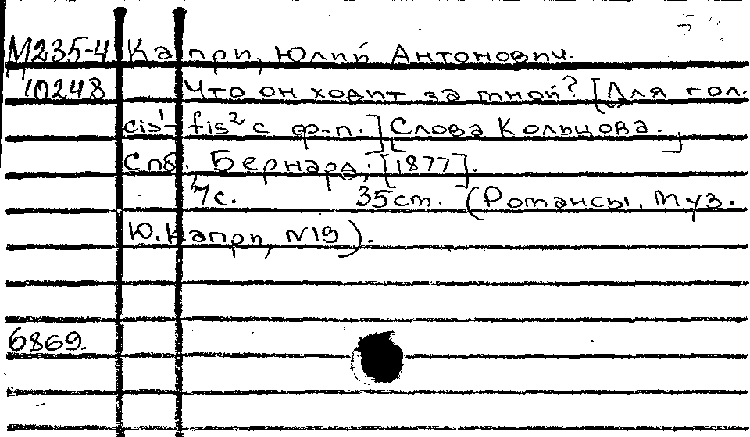 М235-4 Капри, Юлий Антонович.
10248 Что он ходит за мной? [Для гол.
cis¹-fis² с ф-п.] [Слова Кольцова.]
Спб. Бернард, [1877].
4с. 35ст. (Романсы, муз.
Ю. Капри, N19).
6869.